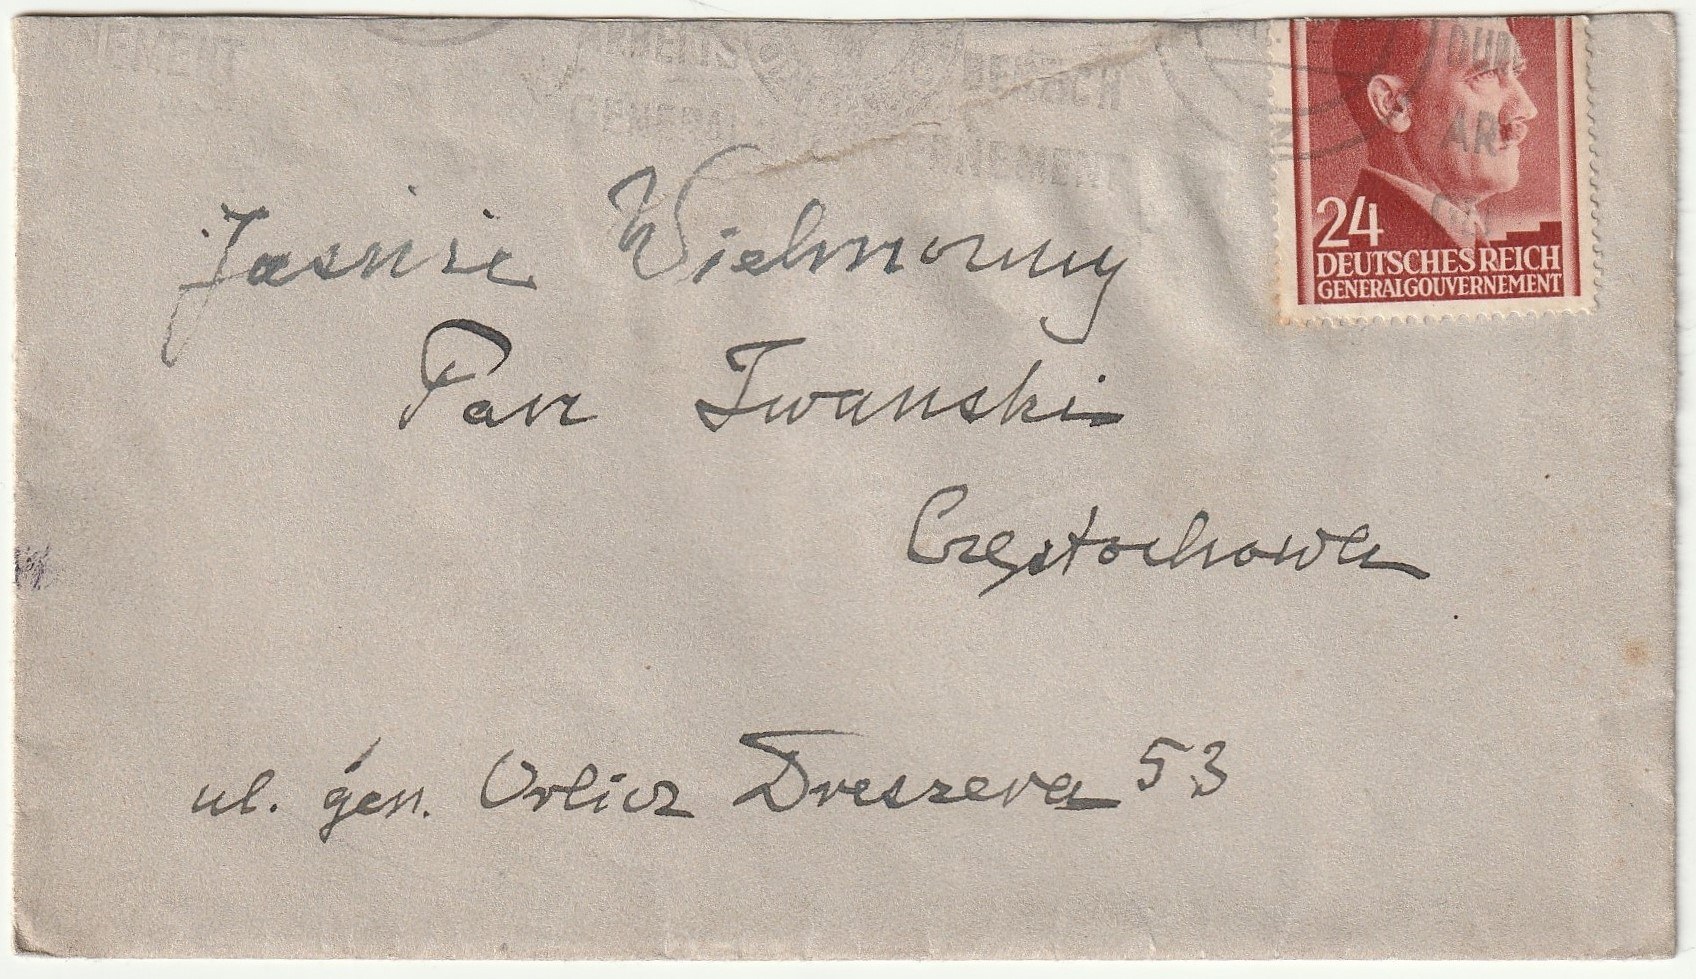 NEMENT
GENERAL
NEMENT
24
DEUTSCHES REICH
GENERALGOUVERNEMENT
Jaśnie Wielmożny
Pan Iwanski
Częstochowa
ul. gen. Orlicz Dreszera 53